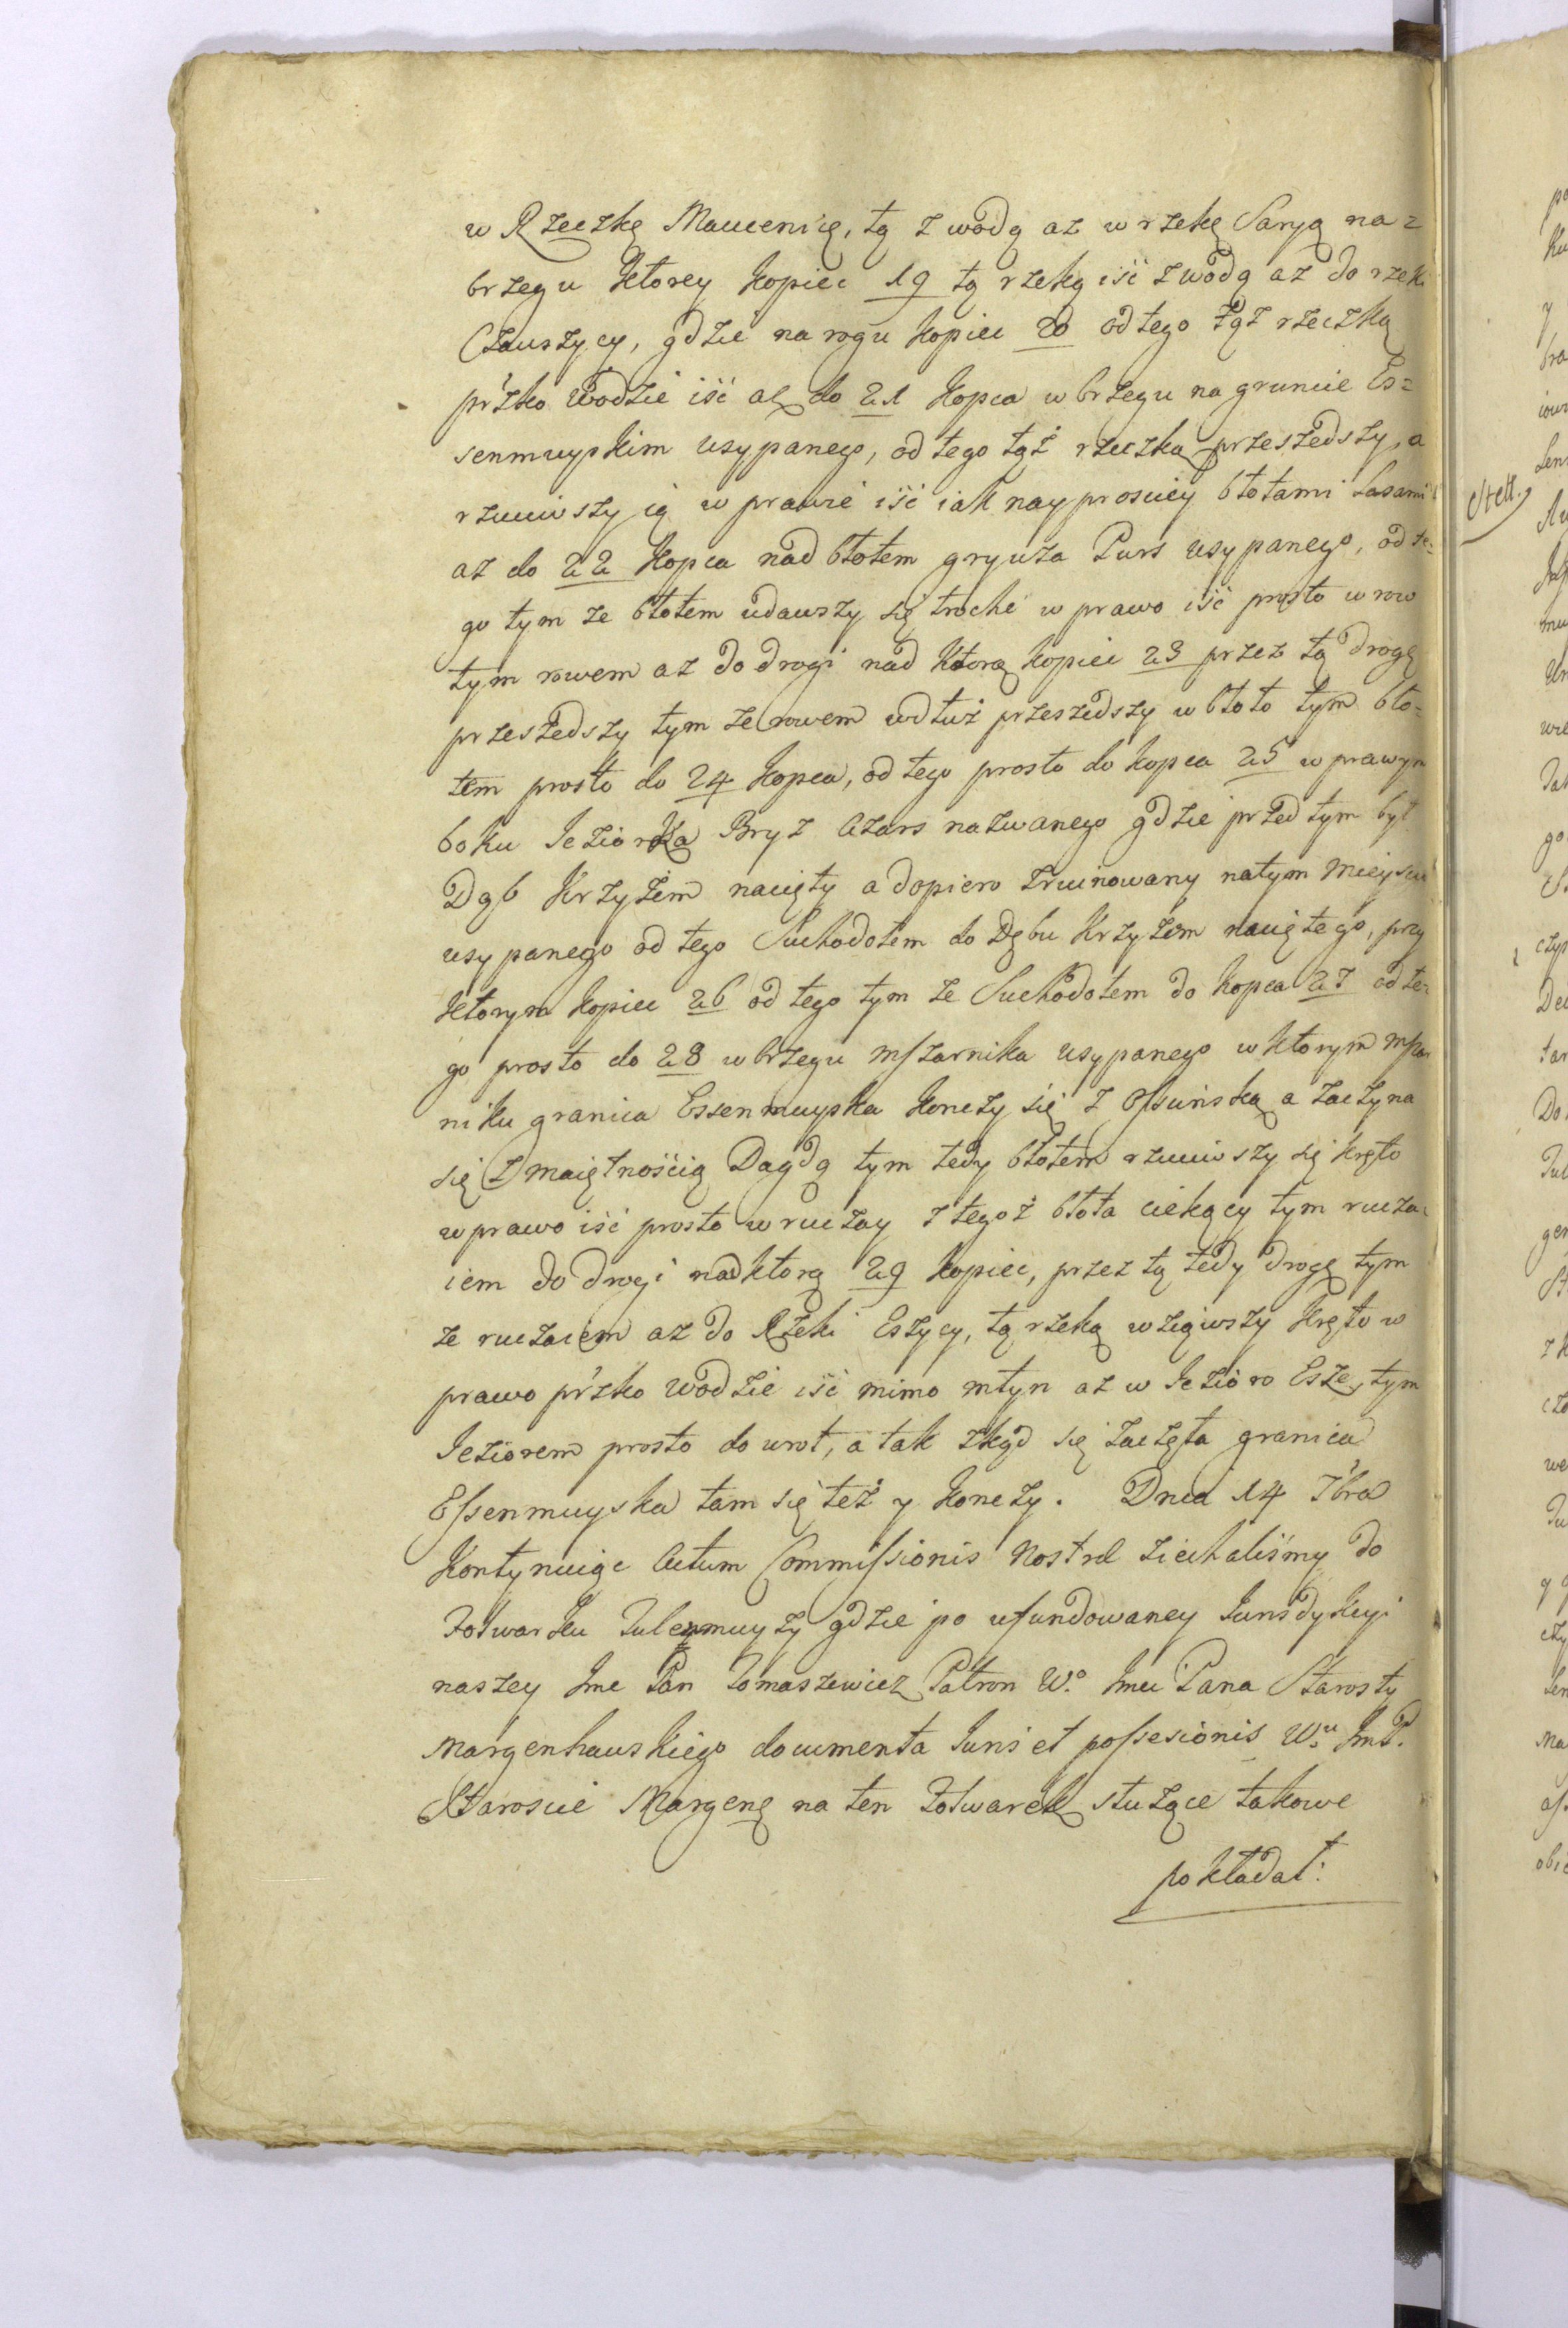 w Rzeczkę Maucenicę, tą z wodą aż w rzekę Saryą na=
brzegu ktorey kopiec 19 tą rzeką iść z wodą aż do rzeki
Czauszycy, gdzie na rogu kopiec 20 od tego tąż rzeczką
przko wodzie iść aż do 21 kopca w brzegu na gruncie Es=
senmuyskim usypanego, od tego tąż rzeczką przeszedszy, a
rzuciwszy ią w prawie iść iak nayprościey błotami Lasami
aż do 22 kopca nad błotem gryuża Purs usypanego, od te=
go tym że błotem udawszy się troche w prawo iść prosto w row
tym rowem aż do drogi nad ktorą kopiec 23 przez tą drogę
przeszedszy tym że rowem wdłuż przeszedszy w błoto tym bło=
tem prosto do 24 kopca, od tego prosto do kopca 25 w prawym
boku Ieziorka Bryz Azars nazwanego gdzie przed tym był
Dąb Krzyżem nacięty a dopiero zruinowany na tym mieyscu
usypanego od tego Suchodołem do Dębu Krzyżem naciętego, przy
ktorym kopiec 26 od tego tym że Suchodołem do kopca 27 od te=
go prosto do 28 w brzegu mszarnika usypanego w ktorym mszar
niku granica Essenmuyska konczy się z Ossuńską a zaczyna
się z maiętnością Dagdą tym tedy błotem rzuciwszy się kręto
w prawo iść prosto w ruczay z tegoż błota ciekący tym rucza=
iem do drogi nad ktorą 29 kopiec, przez tą tedy drogę tym
że ruczaiem aż do Rzeki Eszycy, tą rzeką wziąwszy kręto w
prawo przko wodzie iść mimo młyn aż w Iezioro Esze, tym
Ieziorem prosto do wrot, a tak zkąd się zaczęła granica
Essenmuyska tam się też y konczy. Dnia 14 7bra
Kontynuiąc Actum Commissionis Nostræ ziechaliśmy do
Folwarku Julenmuyży gdzie po ufundowaney Iurisdykcyi
naszey Jmc Pan Tomaszewicz Patron Wo. Jmci Pana Starosty
Margenhauskiego documenta Iuris et possesionis Wu. JmP.
Staroscie Margenę na ten Folwarek służące takowe
pokładał: